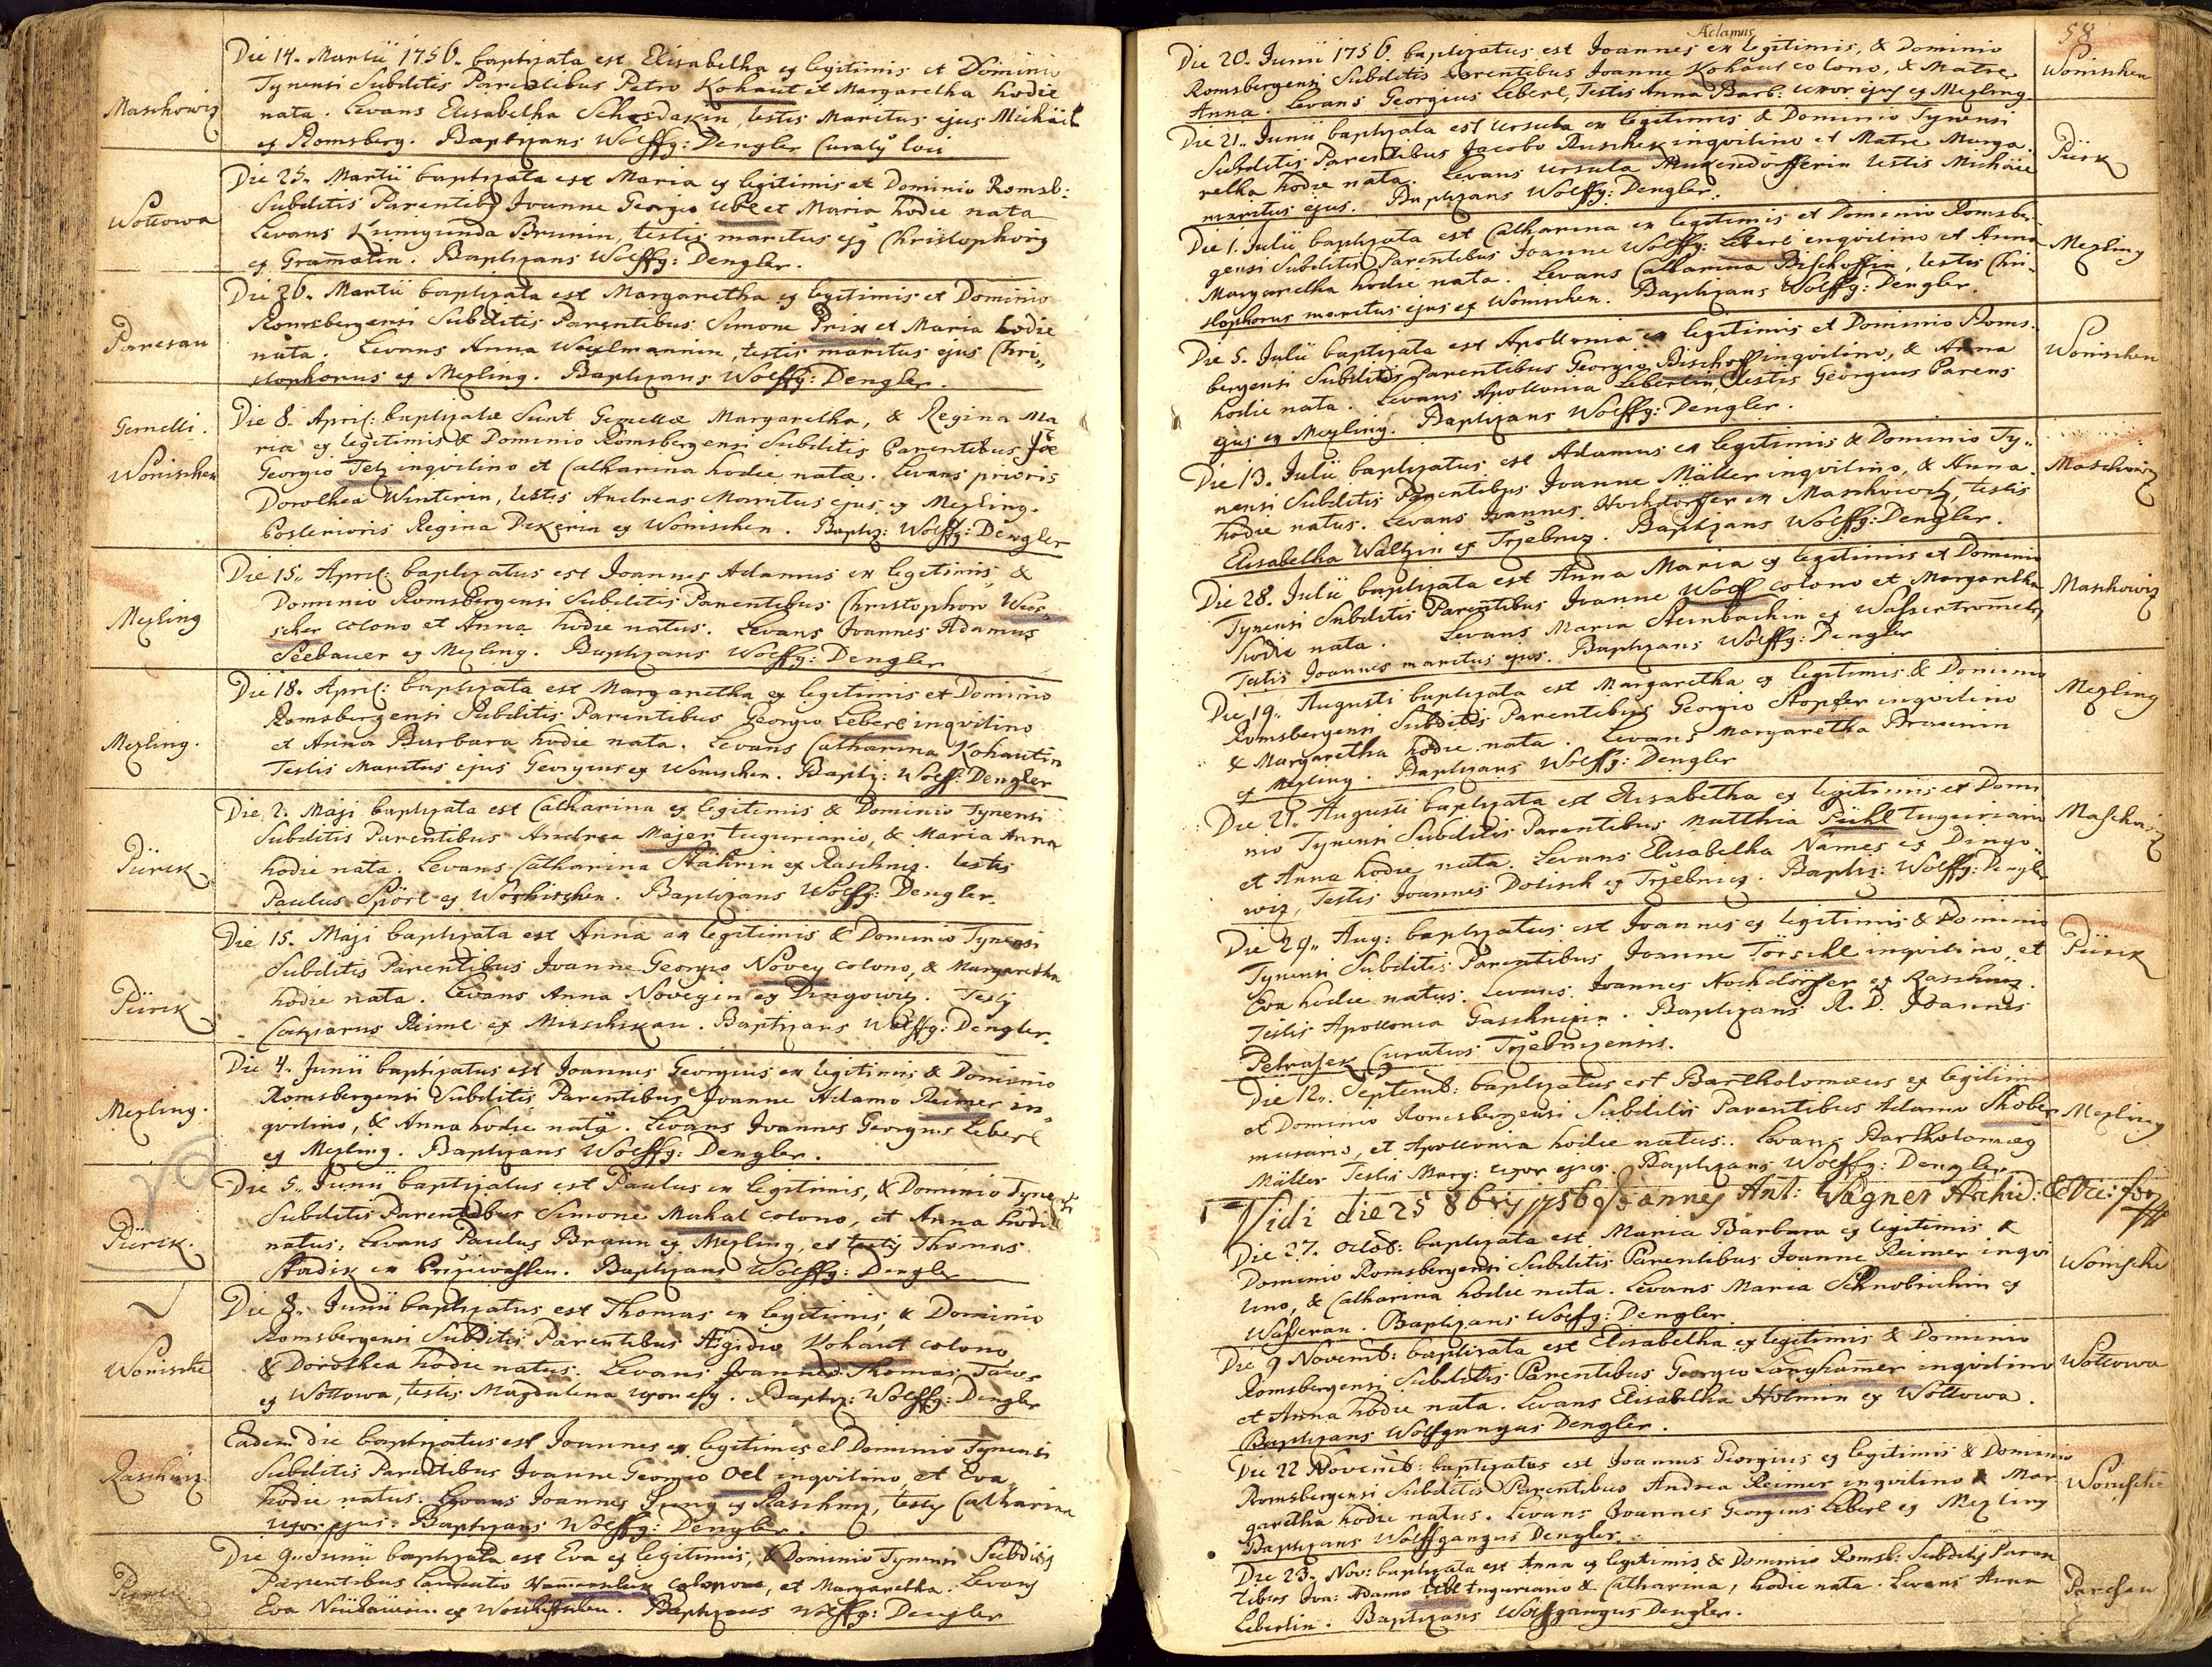 Maschowiz
Die 14. Martii 1756. baptizata est Elisabetha ex legitimis et Dominio
Tynensi Subditis Parentibus Petro Kohaut et Margaretha hodie
nata. Levans Elisabetha testis Maritus ejus Michäel
ex Romsberg. Baptizans Wolffg: Dengler Curatg loci
Wottowa
Die 25. Martii baptizata est Maria ex legitimis et Dominio Romsb:
Subditis Parentibg Joanne Georgio Ubl et Maria hodie nata
Levans Kunigunda Brunin, testis maritus ejg Christophorg
ex Gramatin. Baptizans Wolffg: Dengler.
Paresau
Die 26. Martii baptizata est Margaretha ex legitimis et Dominio
Romsbergensi Subditis Parentibus Simone Prix et Maria hodie
nata. Levans Anna testis maritus ejus Chri„
stophorus ex Mezling. Baptizans Wolffg: Dengler.
Gemelli.
Wonischen
Die 8. April: baptizatæ Sunt Gemellæ Margaretha, & Regina Ma
ria ex legitimis & Dominio Romsbergensi Subditis Parentibus Joe
Georgio Telz inqvilino et Catharina hodie natæ. Levans prioris
Dorothea Winterin, testis Andreas Maritus ejus ex Mezling.
Posterioris Regina Pekerin ex Wonischen. Baptiz: Wolffg: Dengler
Mezling
Die 15. April: baptizatus est Joannes Adamus ex legitimis, &
Dominio Romsbergensi Subditis Parentibus Christophoro
colono et Anna hodie natus. Levans Joannes Adamus
Seebauer ex Mezling. Baptizans Wolffg: Dengler
Mezling.
Die 18. April: baptizata est Margaretha ex legitimis et Dominio
Romsbergensi Subditis Parentibus Georgio Leberl inqvilino
et Anna Barbara hodie nata. Levans Catharina Kohautin
Testis Maritus ejus Georgius ex Wonischen. Baptiz: Wolff: Dengler
Pürck
Die 2. Maji baptizata est Catharina ex legitimis & Dominio Tynensi
Subditis Parentibus Andrea Majer tuguriario, & Maria Anna
hodie nata. Levans Catharina ex Raschnz. testis
Paulus Spörl ex Baptizans Wolffg: Dengler.
Pürck
Die 15. Maji baptizata est Anna ex legitimis & Dominio Tynensi
Subditis Parentibus Joanne Georgio Novey colono, & Margaretha
hodie nata. Levans Anna Noveyin ex Dingowiz. Testg
Casparus Reiml ex Baptizans Wolffg: Dengler.
Mezling.
Die 4. Junii baptizatus est Joannes Georgius ex legitimis & Dominio
Romsbergensi Subditis Parentibus Joanne Adamo Reimer in„
qvilino, & Anna hodie natg. Levans Joannes Georgius Leberl
ex Mezling. Baptizans Wolffg: Dengler.
Pürck.
Die 5. Junii baptizatus est Paulus ex legitimis, & Dominio Tynensi
Subditis Parentibus Simone Mahal colono, et Anna hodie
natus, Levans Paulus Braun ex Mezling, et testis Thomas
Baptizans Wolffg: Dengler
Wonische
Die 8. Junii baptizatus est Thomas ex legitimis, & Dominio
Romsbergensi Subditis Parentibus Ægidio Kohaut colono
& Dorothea hodie natus. Levans Joannes Thomas
ex Wottowa, testis Magdalena uxor ejg. Baptiz: Wolffg: Dengler
Raschnz.
Eadem die baptizatus est Joannes ex legitimis et Dominio Tynensi
Subditis Parentibus Joanne Georgio Oel inqvilino, et Eva
hodie natus. Levans Joannes ex Raschnz, testg Catharina
uxor ejus. Baptizans Wolffg: Dengler.
Die 9. Junii baptizata est Eva ex legitimis, & Dominio Tynensi Subditis
Parentibus Laurentio colono, et Margaretha. Levans
Eva Baptizans Wolffg: Dengler
58
Adamus
Die 20. Junii 1756. baptizatus est Joannes ex legitimis, & Dominio
Romsbergensi Subditis Parentibus Joanne Kohaut colono, & Matre
Anna. Levans Georgius Leberl, Testis Anna Barb: uxor ejg ex Mezling.
Wonischen
Die 21. Junii baptizata est Ursula ex legitimis & Dominio Tynensi
Subditis Parentibus Jacobo Ruschek inqvilino et Matre Marga„
retha hodie nata. Levans Ursula testis Michäel
maritus ejus. Baptizans Wolffg: Dengler.
Pürk
Die 1. Julii baptizata est Catharina ex legitimis et Dominio Romsber„
gensi Subditis Parentibus Joanne Wolffg: Leberl inqvilino et Anna
Margaretha hodie nata. Levans Catharina Bischoffin, testis Chri„
stophorus maritus ejus ex Wonischen. Baptizans Wolffg: Dengler.
Mezling
Die 5. Julii baptizata est Apollonia ex legitimis et Dominio Roms„
bergensi Subditis Parentibus Georgio Bischoff inqvilino, & Anna
hodie nata. Levans Apollonia Leberlin, testis Georgius Parens
ejus ex Mezling. Baptizans Wolffg: Dengler.
Wonischen
Die 13. Julii baptizatus est Adamus ex legitimis & Dominio Ty„
nensi Subditis Parentibus Joanne Müller inqvilino, & Anna
hodie natus. Levans Joannes Hochdörffer ex Maschowiz, testis
Elisabetha Waltzin ex Trzebniz. Baptizans Wolffg: Dengler.
Maschowiz
Die 28. Julii baptizata est Anna Maria ex legitimis et Dominio
Tynensi Subditis Parentibus Joanne Wolff colono et Margaretha
hodie nata. Levans Maria Steinbachin ex Wassertrometn,
Testis Joannes maritus ejus. Baptizans Wolffg: Dengler
Maschowiz
Die 19. Augusti baptizata est Margaretha ex legitimis & Dominio
Romsbergensi Subditis Parentibus Georgio Stopfer inqvilino
& Margaretha hodie nata. Levans Margaretha Braunin
ex Mezling. Baptizans Wolffg: Dengler
Mezling
Die 21. Augusti baptizata est Elisabetha ex legitimis et Domi
nio Tynensi Subditis Parentibus Matthia Pühl tuguriario
et Anna hodie nata. Levans Elisabetha Names ex Dingo„
wiz, Testis Joannes Dolisch ex Trzebniz. Baptiz: Wolffg: Dengler
Maschowiz
Die 29. Aug: baptizatus est Joannes ex legitimis & Dominio
Tynensi Subditis Parentibus Joanne Törschl inqvilino, et
Eva hodie natus. Levans Joannes Hochdörffer ex Raschnz.
Testis Apollonia Gaschnizin. Baptizans R. D. Joannes
Petrasek Curatus Trzebnizensis.
Pürck
Die 12. Septemb: baptizatus est Bartholomæus ex legitimis
et Dominio Romsbergensi Subditis Parentibus Adamo Skober
murario, et Apollonia hodie natus. Levans Bartholomæg
Müller Testis Marg: uxor ejus. Baptizans Wolffg: Dengler.
Mezling
Vidi die 25 8bris 1756 Joannes Ant: Wagner Archid: & Vic: for
Die 27. Octob: baptizata est Maria Barbara ex legitimis &
Dominio Romsbergensi Subditis Parentibus Joanne Reimer inqvi
lino, & Catharina hodie nata. Levans Maria Schnobrichin ex
Wasserau. Baptizans Wolffg: Dengler.
Wonische
Die 9 Novemb: baptizata est Elisabetha ex legitimis & Dominio
Romsbergensi Subditis Parentibus Georgio Langhamer inqvilino
et Anna hodie nata. Levans Elisabetha Holmin ex Wottowa.
Baptizans Wolfgangus Dengler.
Wottowa
Die 22 Novemb: baptizatus est Joannes Georgius ex legitimis & Dominio
Romsbergensi Subditis Parentibus Andrea Reimer inqvilino & Mar
garetha hodie natus. Levans Joannes Georgius Leberl ex Mezling
Baptizans Wolffgangus Dengler.
Wonische
Die 23. Nov: baptizata est Anna ex legitimis & Dominio Romsb: Subditis Paren
tibus Joa: Adamo Ubl tuguriario & Catharina, hodie nata. Levans Anna
Leberlin. Baptizans Wolfgangus Dengler.
Paresau